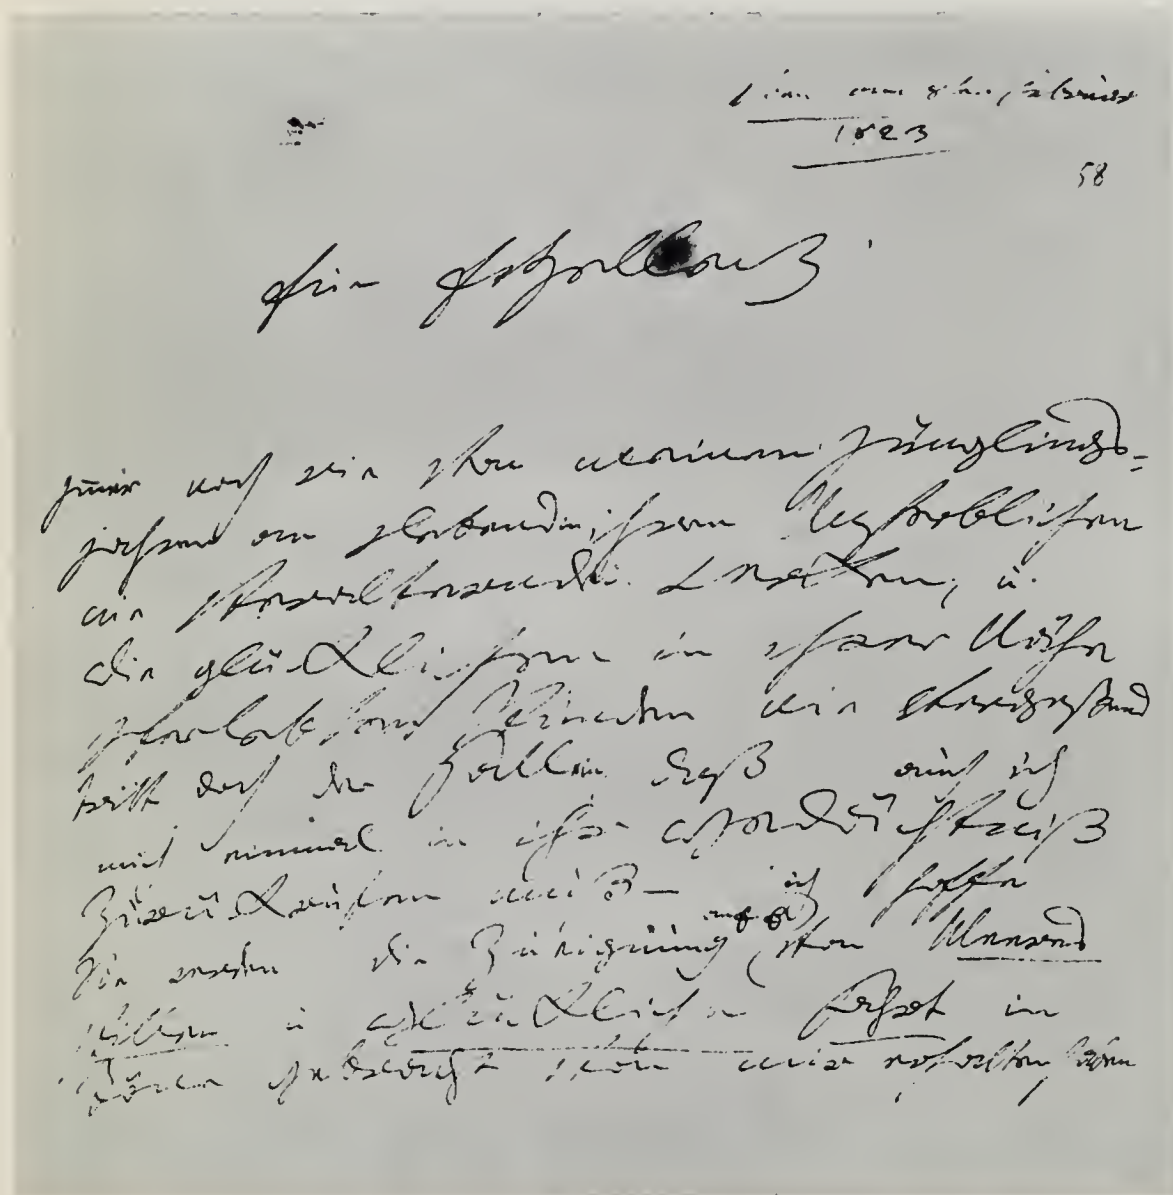 Vien am 8ten Februar
1823
58
Euer Exzellenz!
Immer noch wie von meinen Jünglings=
jahren an lebend in ihren Unsterblichen
nie veralternden Werken, u.
die glücklichen in ihrer Nähe
verlebten stunden nie vergeßend
tritt doch der Fall ein daß auch ich
mich einmal in ihr Gedächtniß
zurückrufen muß — ich hoffe
Sie werden die Zueignung an E.E. von Meeres
stille u. glückliche Fahrt in
Töne gebracht von mir erhalten haben